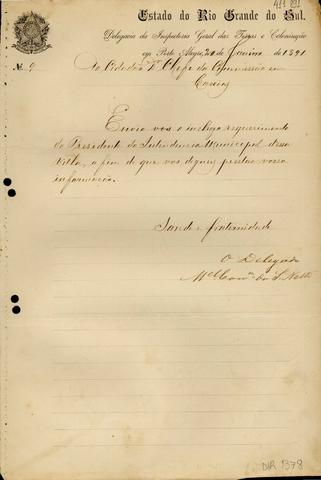 Estado do Rio Grande do Sul.
Delegacia da Inspectoria Geral das Terras e Colonisação
em Porto Alegre, de Janeiro de 1891
Nº 9
Ao Cidadão Chefe da Commissão em
Caxias
Envio vos o incluso requerimento
do Presidente da Intendencia Municipal dessa
Villa, a fim de que vos digneis prestar vossa
informação.
Saude e fraternidade
O Delegado
DIR 1378